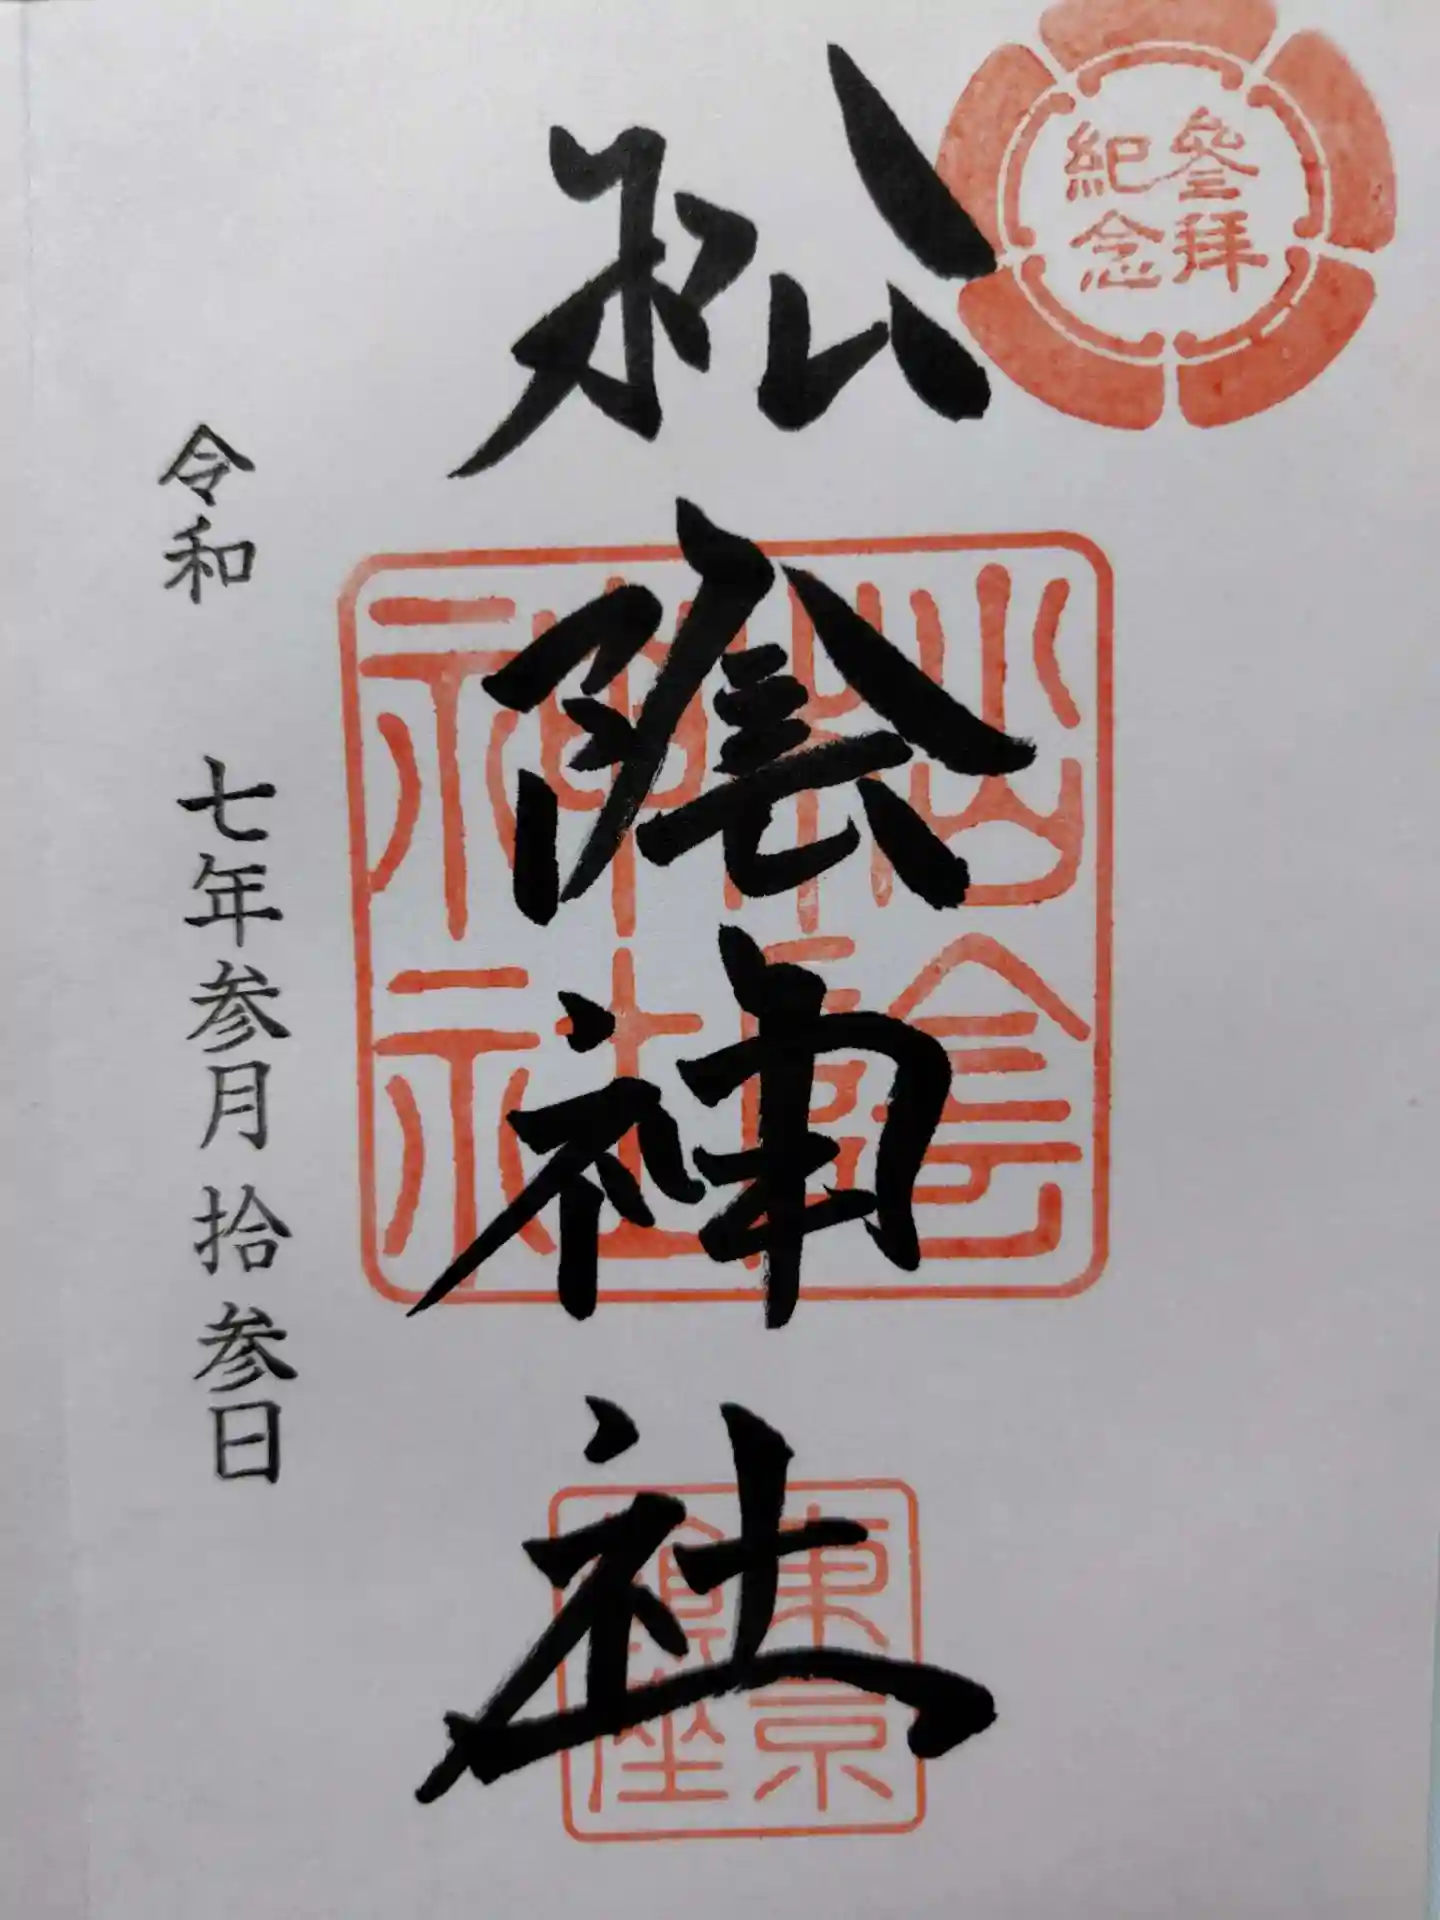 參拜
紀念
松陰神社
松陰
神社
東京
鎮座
令和 七年参月拾参日